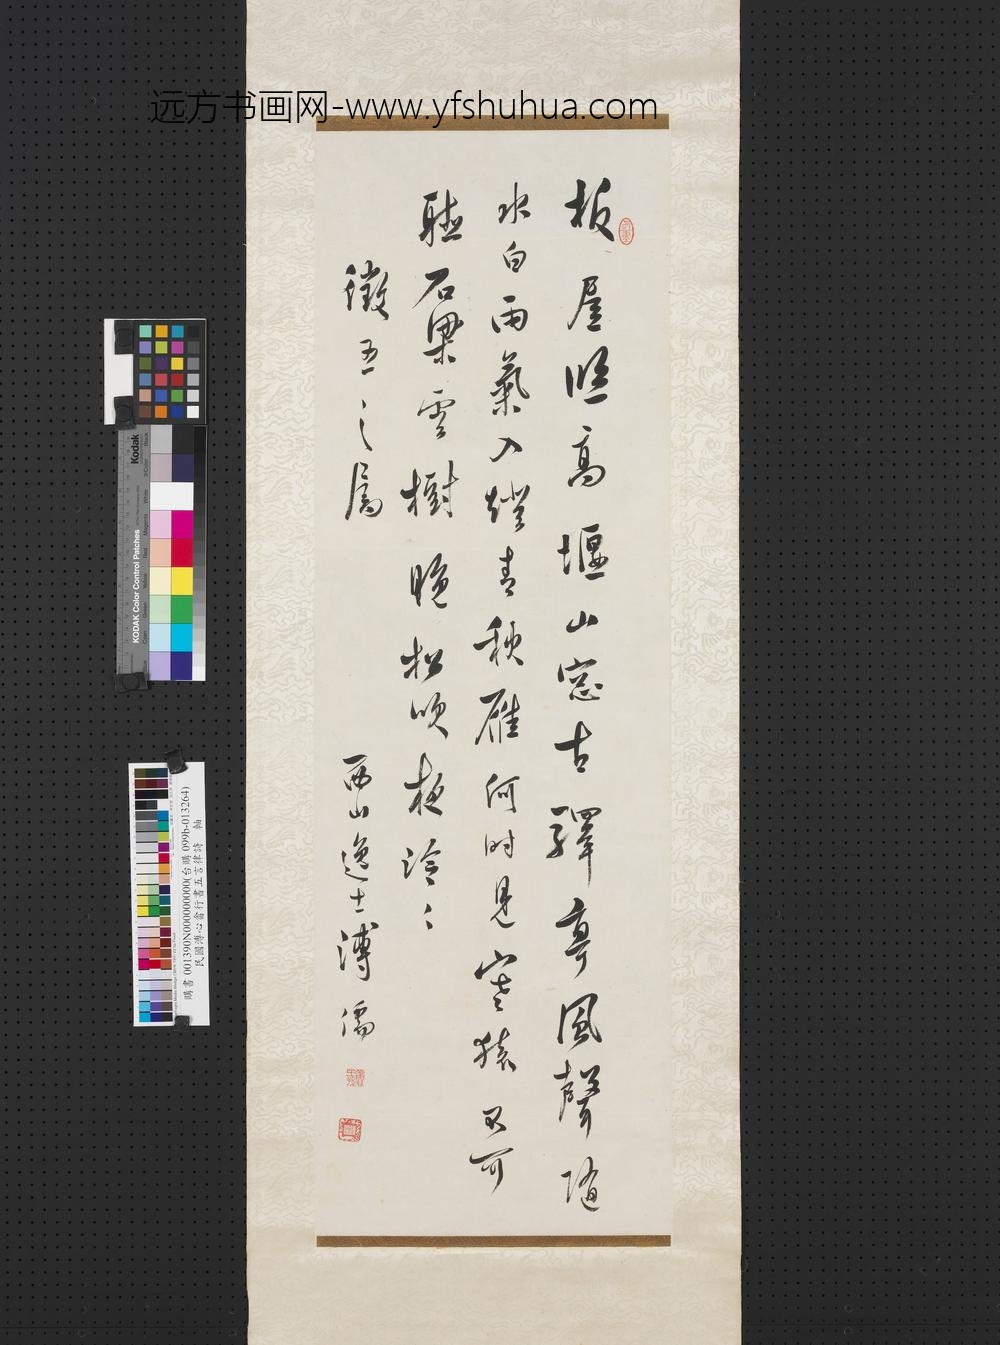 远方书画网-www.yfshuhua.com
板屋臨高堰山窓古驛亭風聲隨
水白雨氣入燈青秋雁何時見寒猿不可
聽石梁雲樹晚松吹夜泠〻
徵五之屬
西山逸士溥儒
Kodak
KODAK Color Control Patches
購書 001390N000000000(台購 099b-013264)
民國溥心畬行書五言律詩 軸